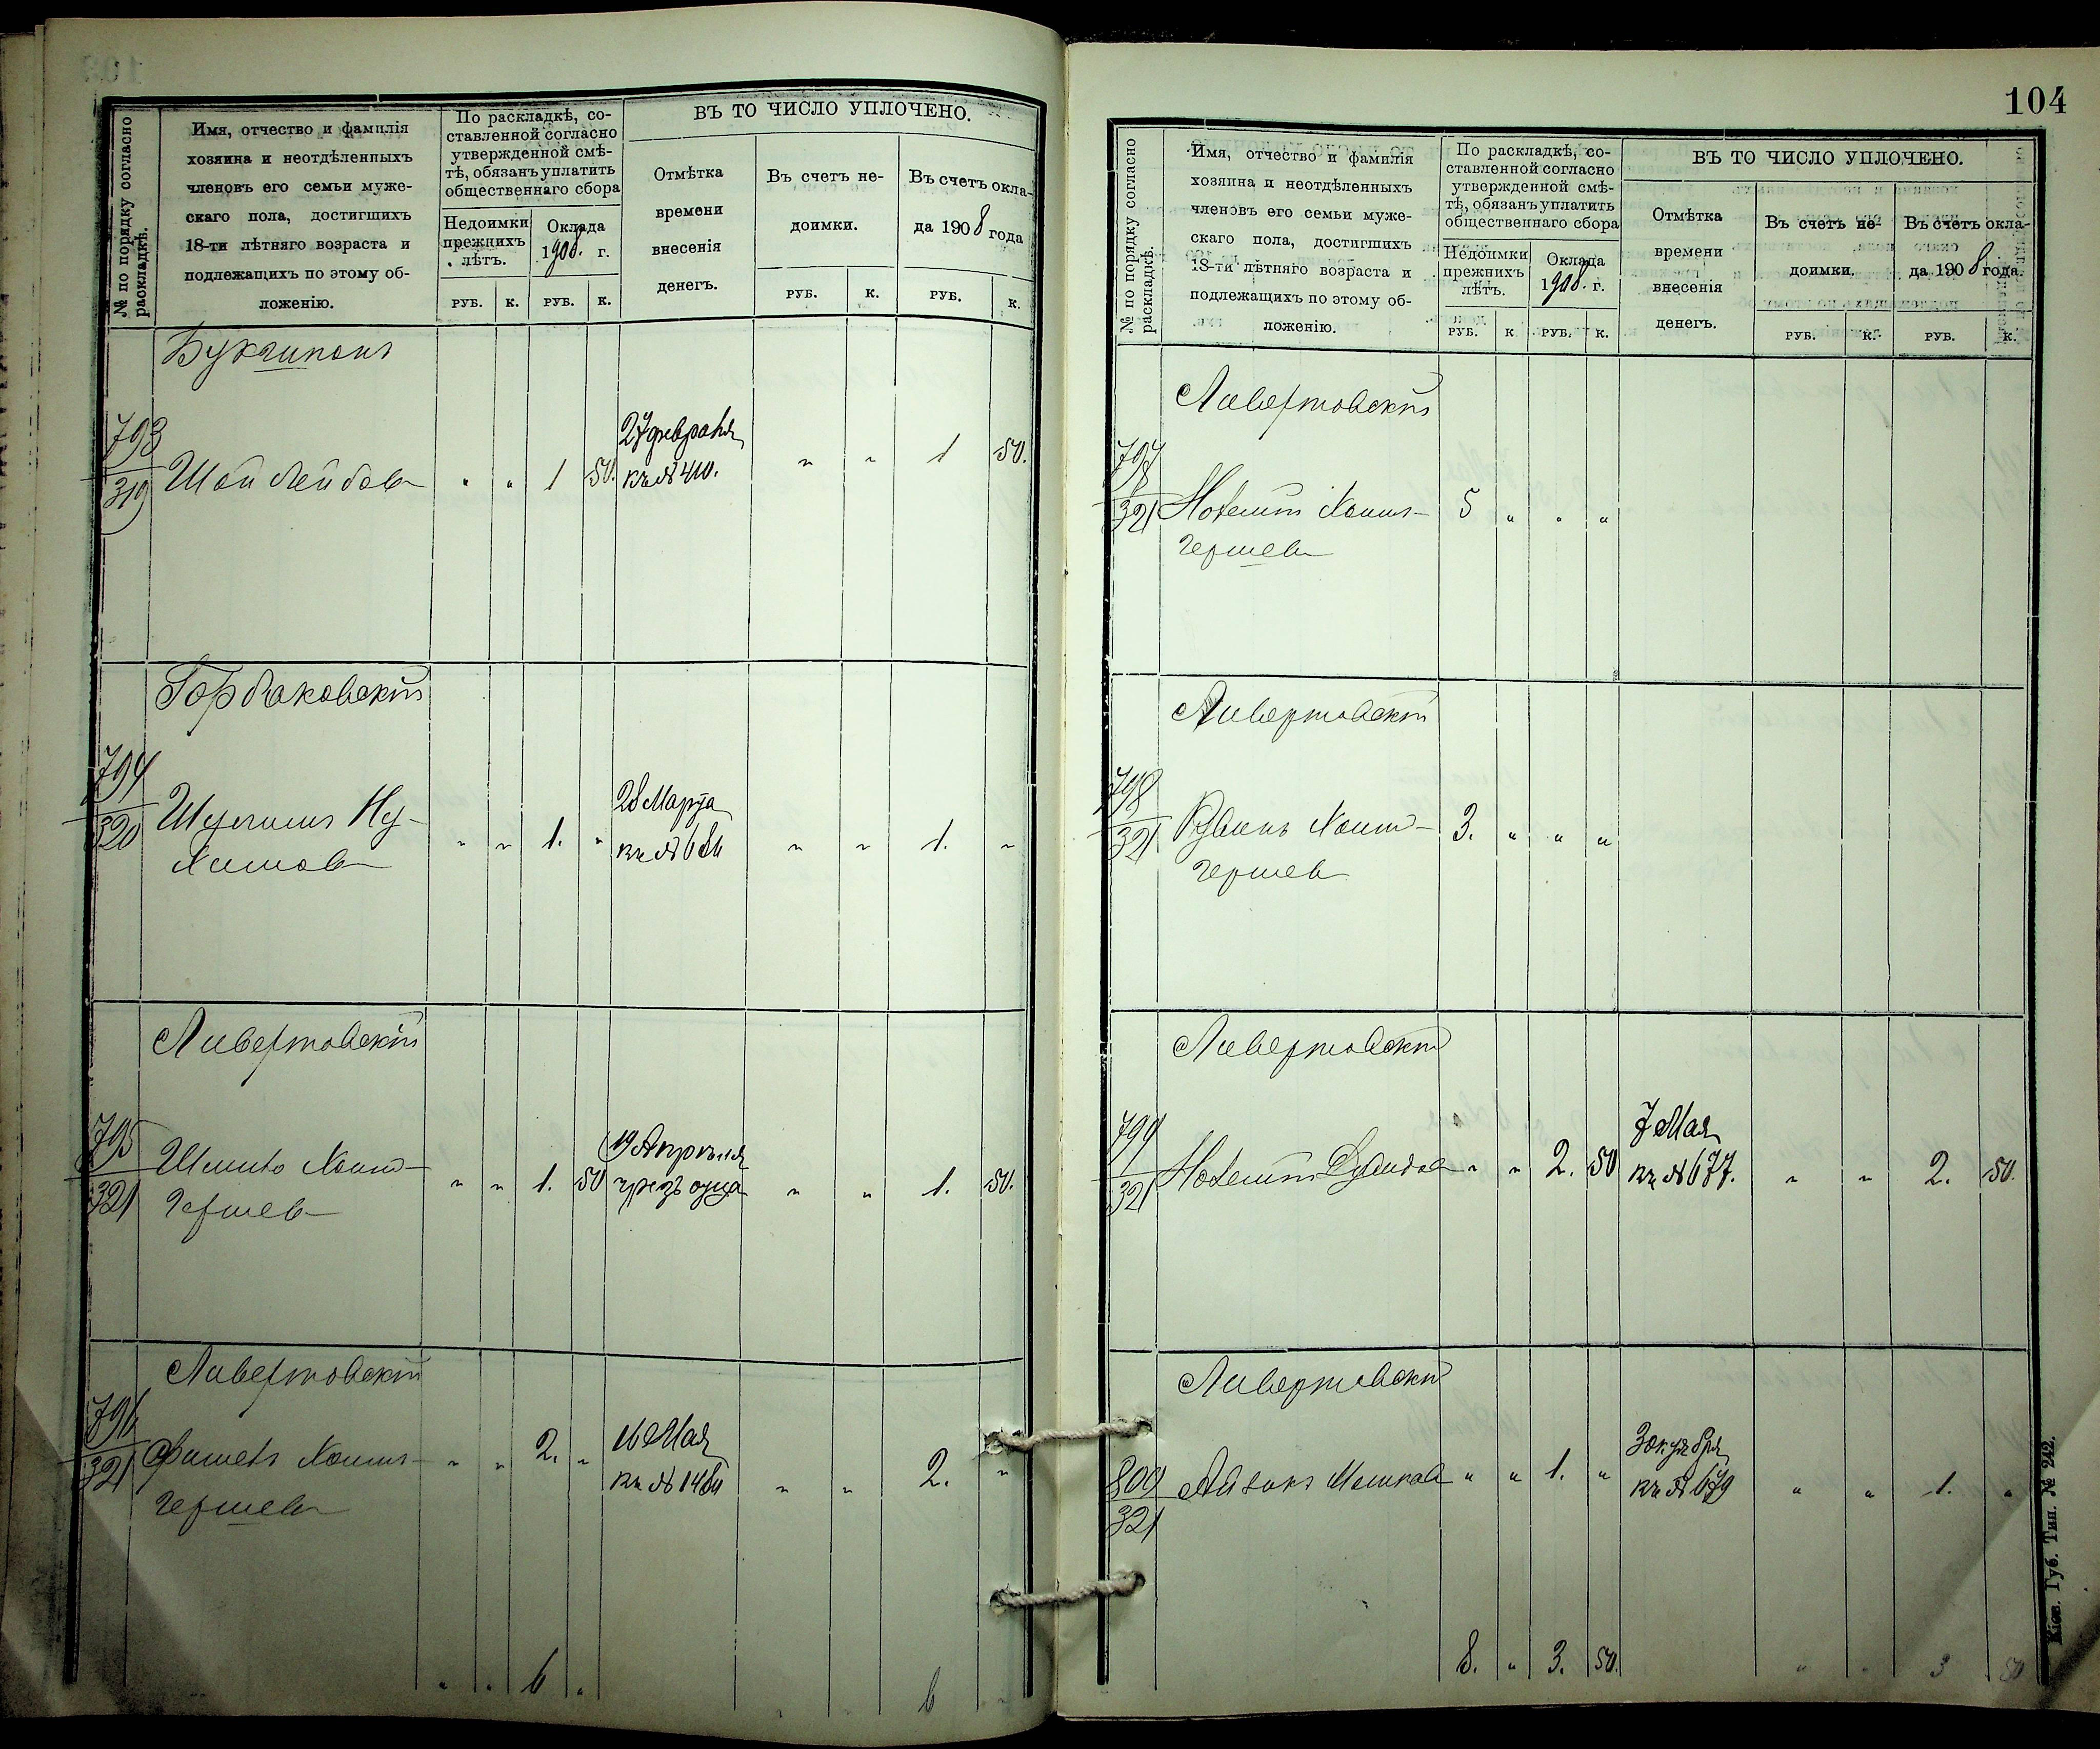 № по порядку согласно раскладкѣ.
Имя, отчество и фамилія
хозяина и неотдѣленныхъ
членовъ его семьи муже-
скаго пола, достигшихъ
18-ти лѣтняго возраста и
подлежащихъ по этому об-
ложенію.
По раскладкѣ, со-
ставленной согласно
утвержденной смѣ-
тѣ, обязанъ уплатить
общественнаго сбора
Недоимки
прежнихъ
лѣтъ.
Оклада
1908. г.
ВЪ ТО ЧИСЛО УПЛОЧЕНО.
Отмѣтка
времени
внесенія
денегъ.
Въ счетъ не-
доимки.
Въ счетъ окла-
да 1908 года
РУБ. К. РУБ. К. РУБ. К. РУБ. К.
793
319
Шая Лейбовъ
" " 1 50.
27 февраля
кв № 410.
" " 1 50.
Горбаковскій
794
320
" " 1. "
28 Марта
" " 1. "
Ливертовскій
795
321
Шмилъ Хаим-
Гершев
" " 1. 50
19 Апрѣля
чрезъ отца
" " 1. 50.
Ливертовскій
796
321
Хаим-
Гершев
" " 2. "
16 Мая
" " 2. "
" " 6 "
" " 6 "
104
№ по порядку согласно раскладкѣ.
Имя, отчество и фамилія
хозяина и неотдѣленныхъ
членовъ его семьи муже-
скаго пола, достигшихъ
18-ти лѣтняго возраста и
подлежащихъ по этому об-
ложенію.
По раскладкѣ, со-
ставленной согласно
утвержденной смѣ-
тѣ, обязанъ уплатить
общественнаго сбора
Недоимки
прежнихъ
лѣтъ.
Оклада
1908. г.
ВЪ ТО ЧИСЛО УПЛОЧЕНО.
Отмѣтка
времени
внесенія
денегъ.
Въ счетъ не-
доимки.
Въ счетъ окла-
да 1908 года.
РУБ. К РУБ. К. РУБ. К. РУБ. К.
Ливертовскій
797
321
Хаим-
Гершев
5 " " "
Ливертовскій
798
321
Рувинъ Хаим-
Гершев
3. " " "
Ливертовскій
799
321
" " 2. 50
7 Мая
кв № 677.
" " 2. 50.
Ливертовскій
800
321
Айзикъ Мошков
" " 1. "
3 октября
кв № 679
" " 1. "
8. " 3. 50.
" " 3 50
Кіев. Губ. Тип. № 242.